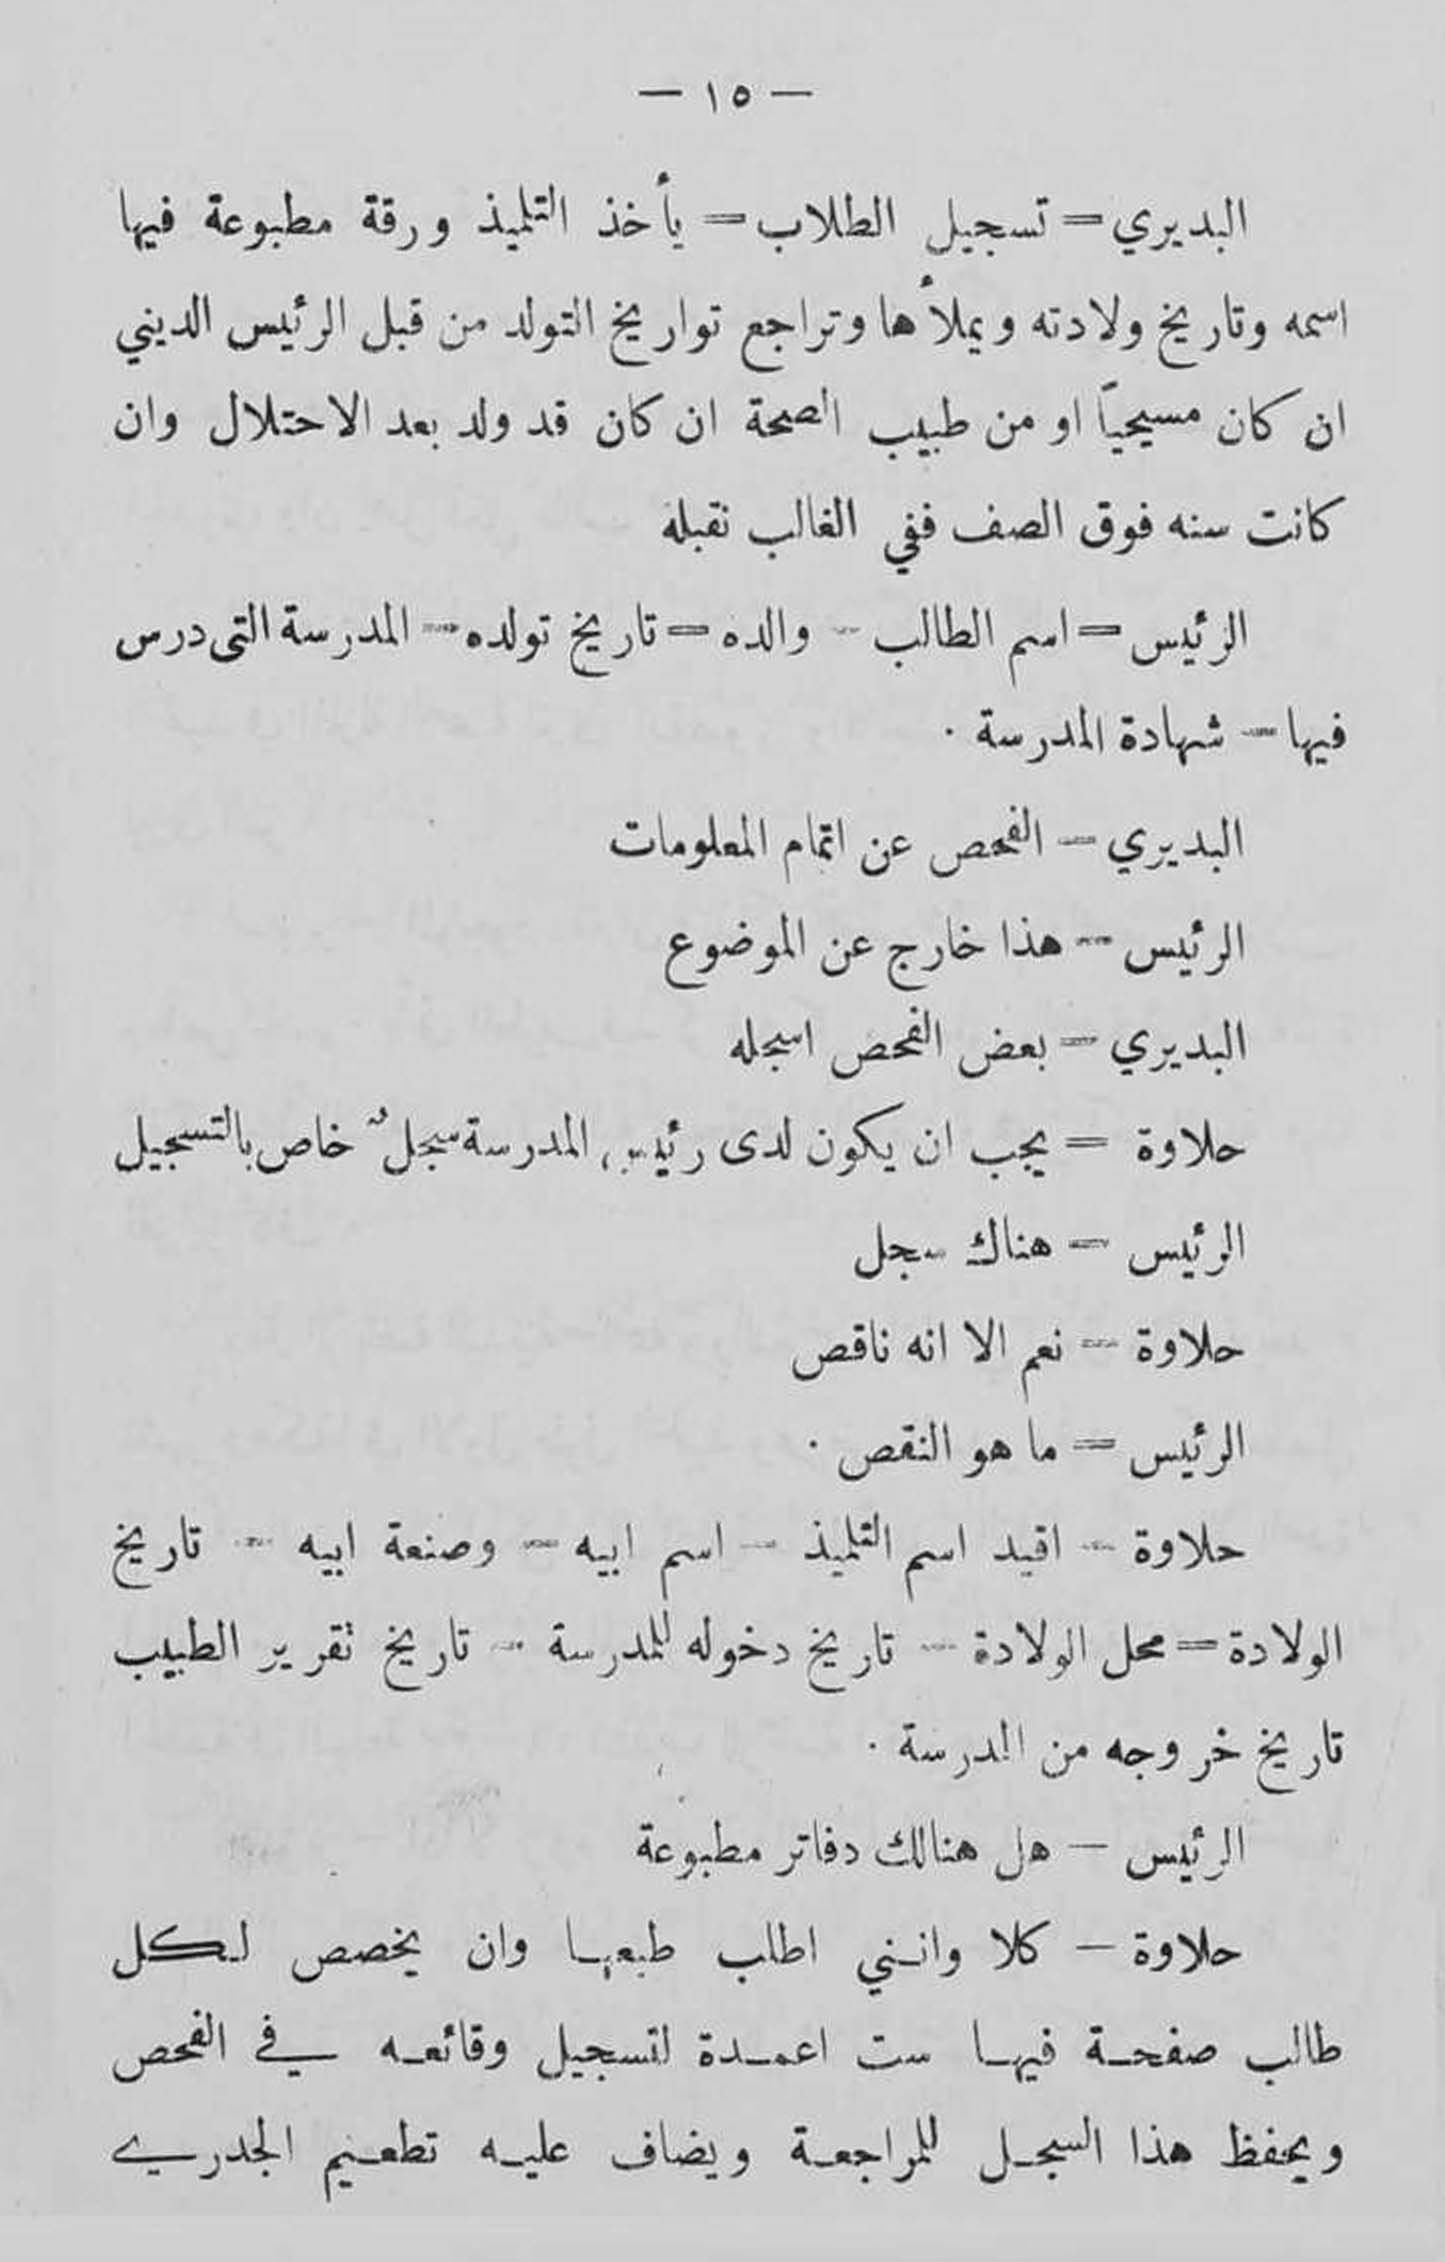 — ١٥ —
البديري = تسجيل الطلاب = يأخذ التلميذ ورقة مطبوعة فيها
اسمه وتاريخ ولادته ويملأها وتراجع تواريخ التولد من قبل الرئيس الديني
ان كان مسيحياً او من طبيب الصحة ان كان قد ولد بعد الاحتلال وان
كانت سنه فوق الصف ففي الغالب نقبله
الرئيس = اسم الطالب — والده = تاريخ تولده — المدرسة التي درس
فيها — شهادة المدرسة .
البديري — الفحص عن اتمام المعلومات
الرئيس — هذا خارج عن الموضوع
البديري — بعض الفحص اسجله
حلاوة = يجب ان يكون لدى رئيس المدرسة سجل خاص بالتسجيل
الرئيس — هناك سجل
حلاوة — نعم الا انه ناقص
الرئيس = ما هو النقص .
حلاوة — اقيد اسم التلميذ — اسم ابيه — وصنعة ابيه — تاريخ
الولادة = محل الولادة — تاريخ دخوله للمدرسة — تاريخ تقرير الطبيب
تاريخ خروجه من المدرسة .
الرئيس — هل هنالك دفاتر مطبوعة
حلاوة — كلا وانني اطلب طبعها وان يخصص لكل
طالب صفحة فيها ست اعمدة لتسجيل وقائعه في الفحص
ويحفظ هذا السجل للمراجعة ويضاف عليه تطعيم الجدري